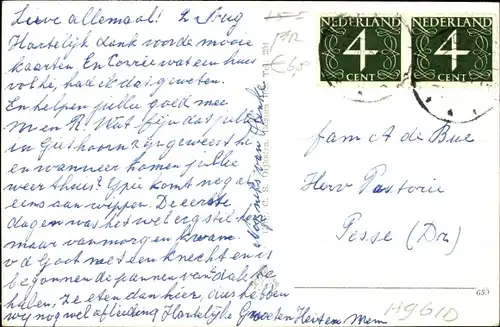 Lieve allemaal! 2 Aug
Hartelijk dank voor de mooie
kaarten. En Corrie wat een huis
vol hè, had ik dat geweten.
En helpen jullie goed mee
M en R. Wat fijn dat jullie
in Giethoorn zijn geweest he
en wanneer komen jullie
weer thuis? Ypie komt nog al
eens aanwippen. De eerste
dagen was het wel erg stil ten
maar van morgen kwam
v d Goot met een knecht en is
begonnen de pannen van dak te
halen. Ze eten dan hier, dus hebben
wij nog wel afleiding Hartelijke Groeten Heit en Mem
Nog niets van
NEDERLAND
4
CENT
NEDERLAND
4
CENT
fam C A de Bue
Herv Pastorie
Pesse (Dr.)
659
H961D